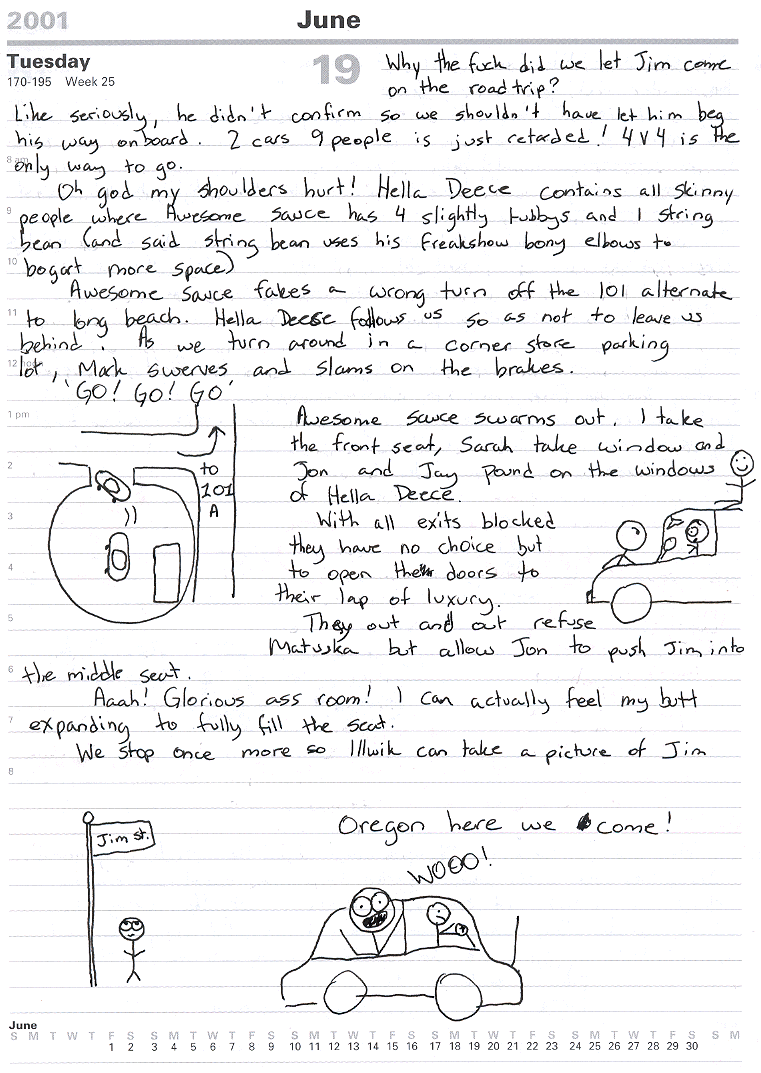 2001 June
Tuesday 19
170-195 Week 25
Why the fuck did we let Jim come
on the road trip?
Like seriously, he didn't confirm so we shouldn't have let him beg
his way onboard. 2 cars 9 people is just retarded! 4 V 4 is the
8 am
only way to go.
Oh god my shoulders hurt! Hella Deece contains all skinny
9
people where Awesome Sauce has 4 slightly tubbys and 1 string
bean (and said string bean uses his freakshow bony elbows to
10
bogart more space)
Awesome Sauce fakes a wrong turn off the 101 alternate
11
to long beach. Hella Deece follows us so as not to leave us
behind. As we turn around in a corner store parking
12 noon
lot, Mark swerves and slams on the brakes.
'GO! GO! GO'
1 pm
Awesome sauce swarms out. I take
the front seat, Sarah take window and
2
to
101
A
Jon and Jay pound on the windows
of Hella Deece.
3
With all exits blocked
they have no choice but
4
to open their doors to
their lap of luxury.
5
They out and out refuse
Matuska but allow Jon to push Jim into
6
the middle seat.
Aaah! Glorious ass room! I can actually feel my butt
7
expanding to fully fill the seat.
We stop once more so Illwik can take a picture of Jim
8
Jim st.
Oregon here we come!
WOOO!
June
S M T W T F S S M T W T F S S M T W T F S S M T W T F S S M T W T F S S M
1 2 3 4 5 6 7 8 9 10 11 12 13 14 15 16 17 18 19 20 21 22 23 24 25 26 27 28 29 30